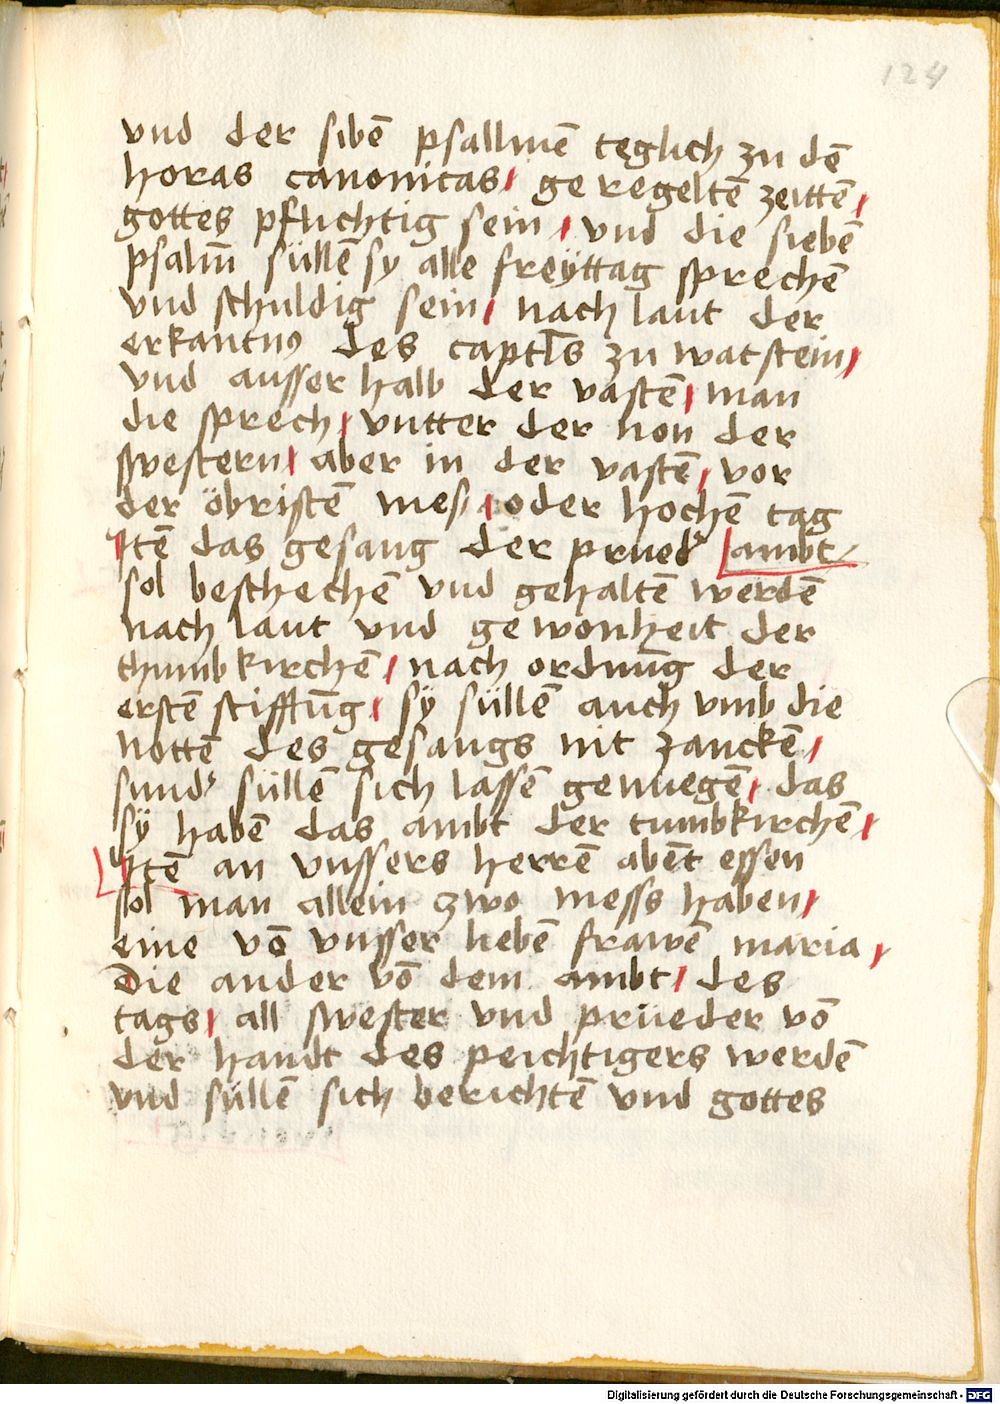 124
vnd der sibē psallmē teglich zu dē
horas canonicas / geregeltē zeittē /
gottes pflichtig sein / vnd die siebē
psalm̄ süllē sy alle freÿttag sprechē
vnd schuldig sein / nach laut der
erkantnꝰ des captl̄s zu watstein /
vnd ausser halb der vastē / man
die sprech / vntter der non der
swestern / aber in der vastē / vor
der öbristē mess / oder hochē tag
Itē das gesang der prued' ambt /
sol beschechē vnd gehaltē werdē
nach laut vnd gewonheit der
thumbkirchē / nach ordnūg der
erstē stifftūg / sÿ süllē auch vmb die
nottē des gesangs nit zanckē /
sund' süllē sich lassē genuegē / das
sÿ habē das ambt der tumbkirchē /
Itē an vnssers herrē abēt essen
sol man allein zwo messs haben /
eine vō vnsser liebē frawē maria /
Die ander vō dem ambt / des
tags / all swester vnd prüeder vō
der handt des peichtigers werdē
vnd süllē sich berichtē vnd gottes
Digitalisierung gefördert durch die Deutsche Forschungsgemeinschaft - DFG